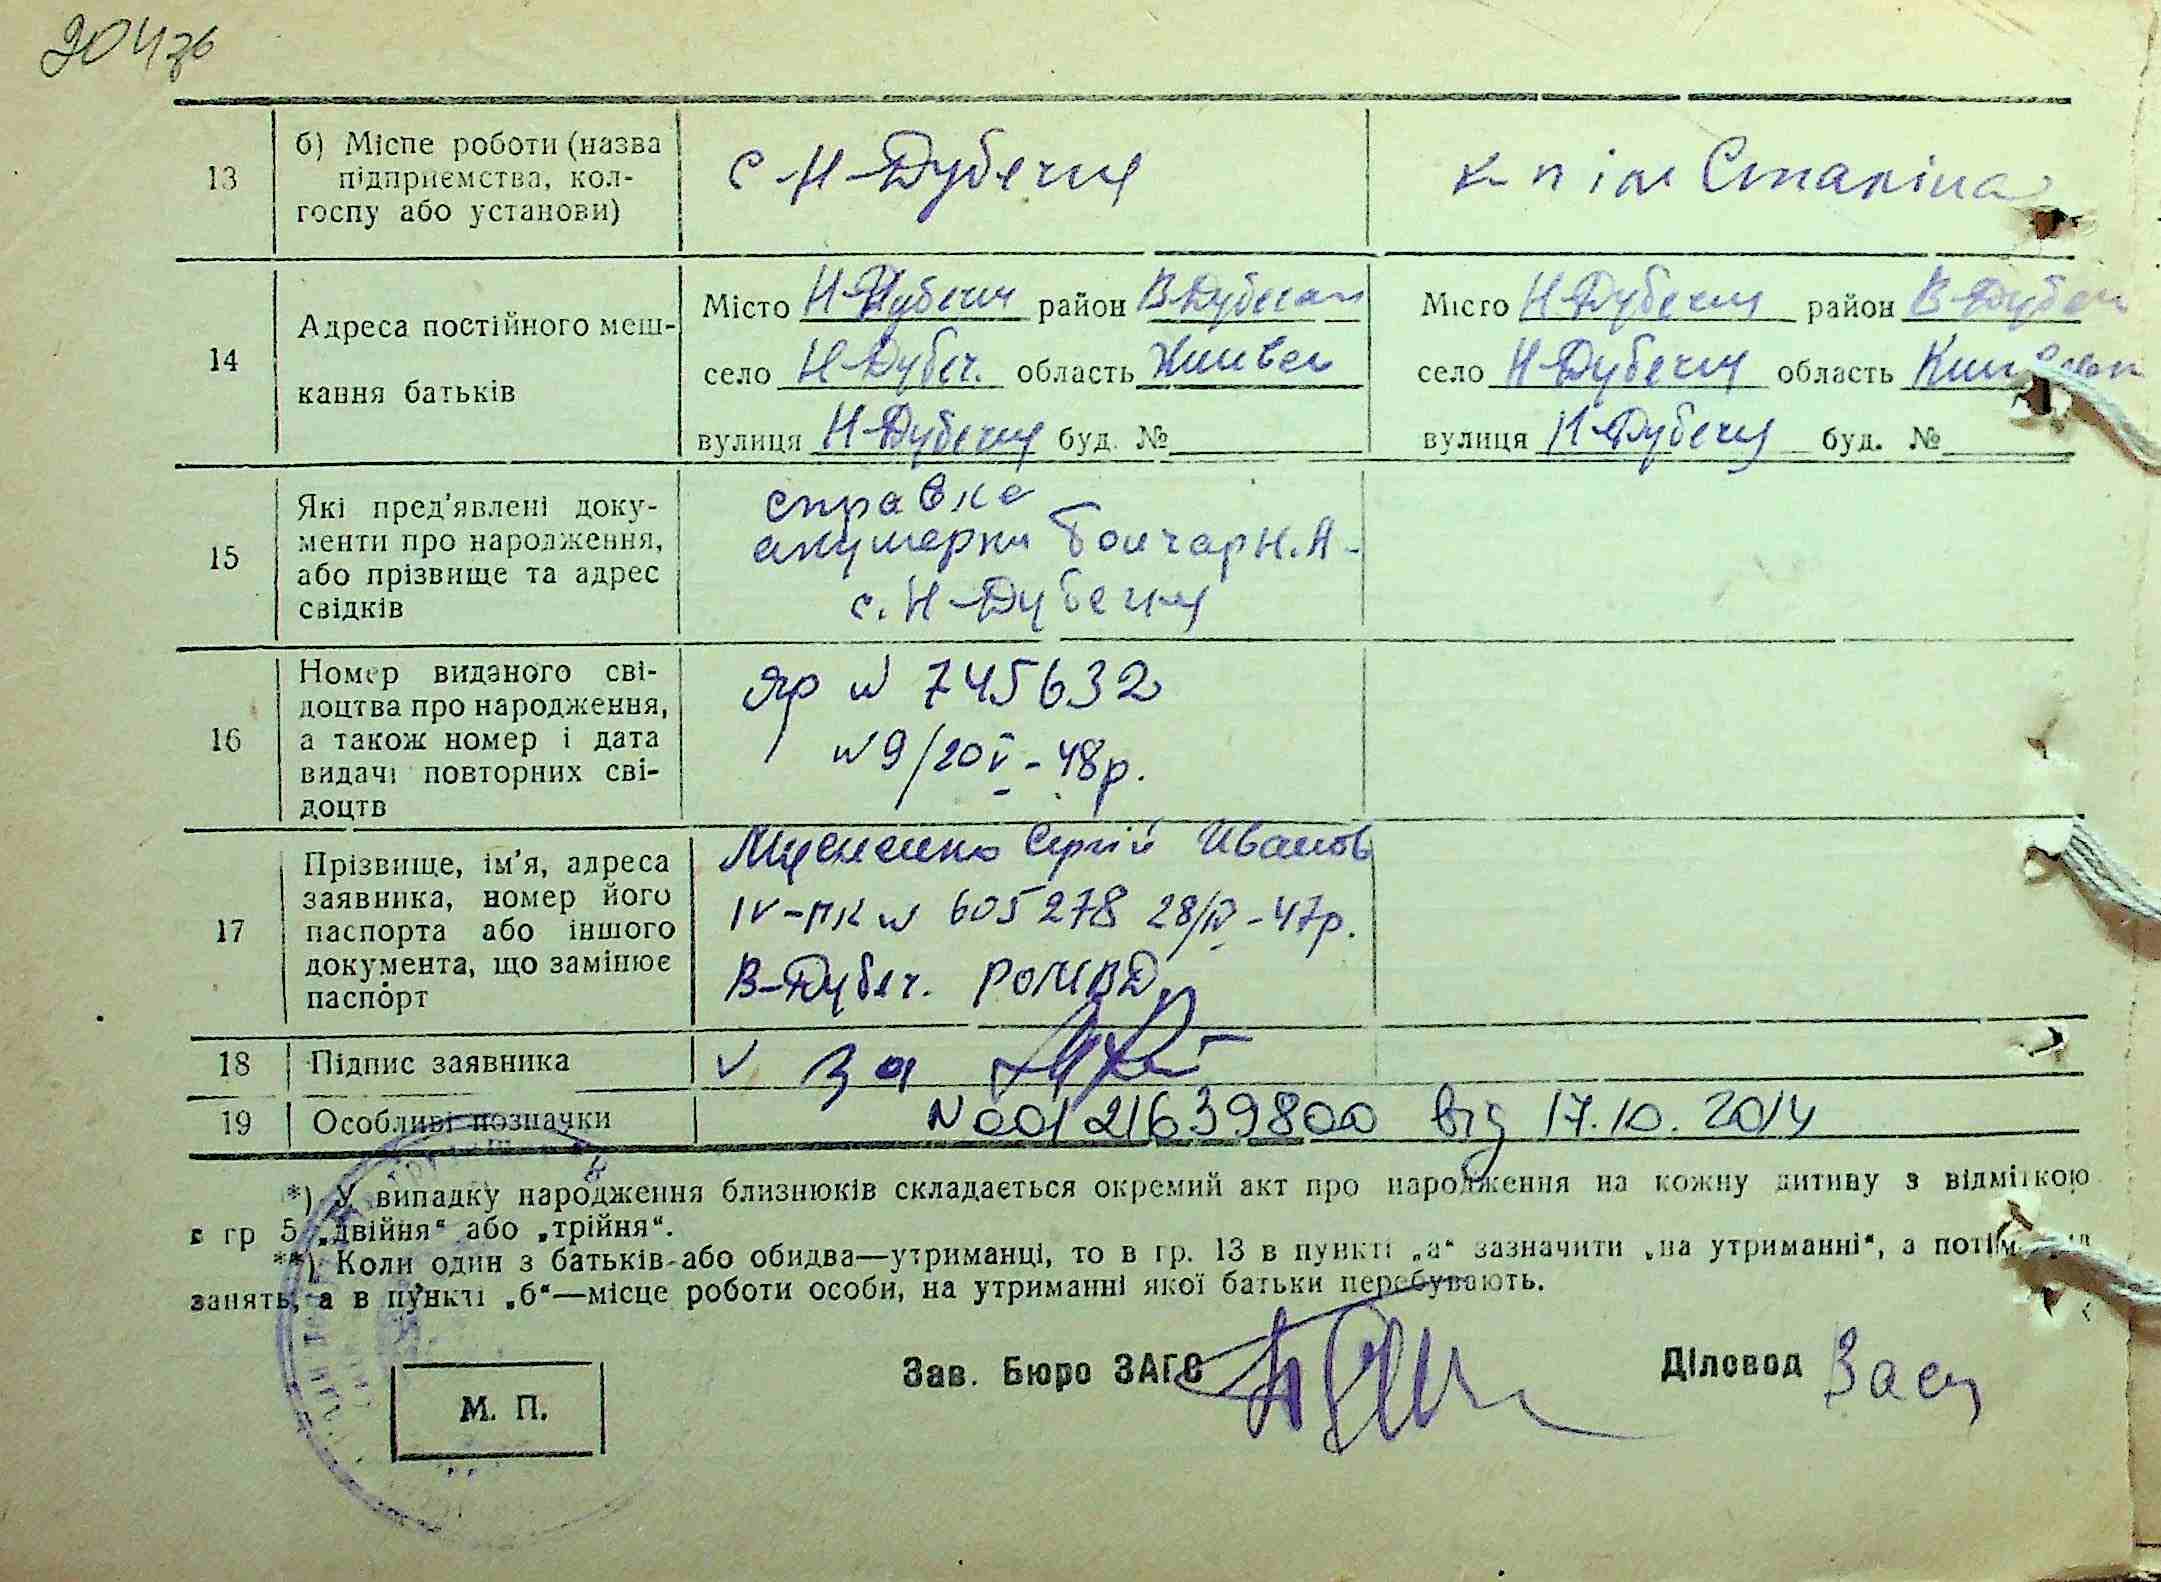 204 зв
13
б) Місце роботи (назва
підприємства, кол-
госпу або установи)
с Н-Дубечня
к-п ім Сталіна
14
Адреса постійного меш-
кання батьків
Місто Н-Дубечня район В-Дубечан
село Н-Дубеч. область Київськ
вулиця Н-Дубечня буд. №
Місто Н-Дубечня район В-Дубеч
село Н-Дубечня область Київськ
вулиця Н-Дубечня буд. №
15
Які пред'явлені доку-
менти про народження,
або прізвище та адрес
свідків
справка
акушерки Гончар Н.А-
с. Н-Дубечня
16
Номер виданого сві-
доцтва про народження,
а також номер і дата
видачі повторних сві-
доцтв
яр № 745632
№9/20 V-48р.
17
Прізвище, ім'я, адреса
заявника, номер його
паспорта або іншого
документа, що замінює
паспорт
Сергій Иванов
IV-ПК № 605278 28/IV-47р.
В-Дубеч. РОМВД
18
Підпис заявника
V за
19
Особливі позначки
N 00121639800 від 17.10.2014
*) У випадку народження близнюків складається окремий акт про народження на кожну дитину з відміткою
в гр 5 „двійня“ або „трійня“.
**) Коли один з батьків або обидва—утриманці, то в гр. 13 в пункті „а“ зазначити „на утриманні“, а потім
занять, а в пункті „б“—місце роботи особи, на утриманні якої батьки перебувають.
М. П.
Зав. Бюро ЗАГС
Діловод